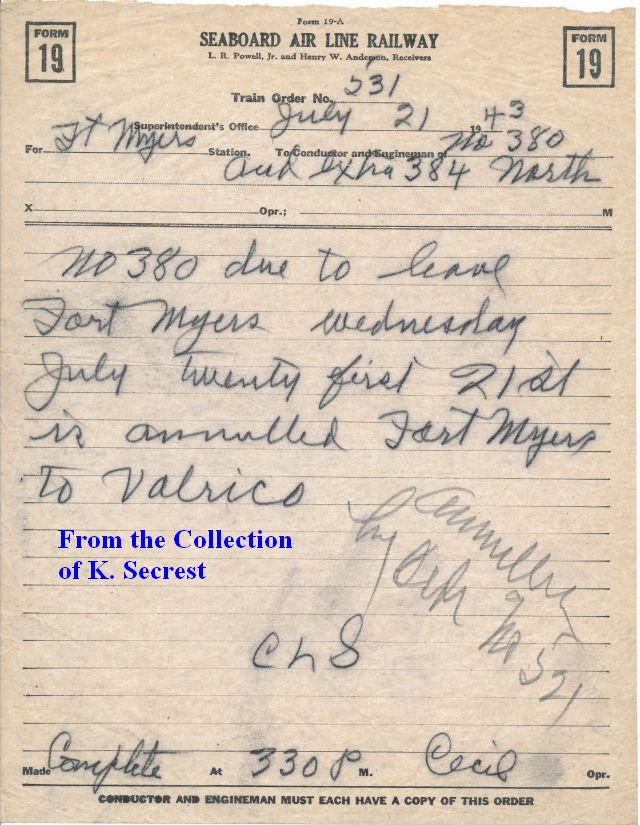 Form 19-A
FORM
19
SEABOARD AIR LINE RAILWAY
FORM
19
L. R. Powell, Jr. and Henry W. Anderson, Receivers
Train Order No. 531
Superintendent's Office July 21 1943
For Ft Myers Station. To Conductor and Engineman of No 380
and Extra 384 North
X Opr.; M
No 380 due to leave
Fort Myers Wednesday
July twenty first 21st
is annulled Fort Myers
to Valrico
From the Collection
of K. Secrest
by
No 521
Made Complete At 330 P M. Cecil Opr.
CONDUCTOR AND ENGINEMAN MUST EACH HAVE A COPY OF THIS ORDER